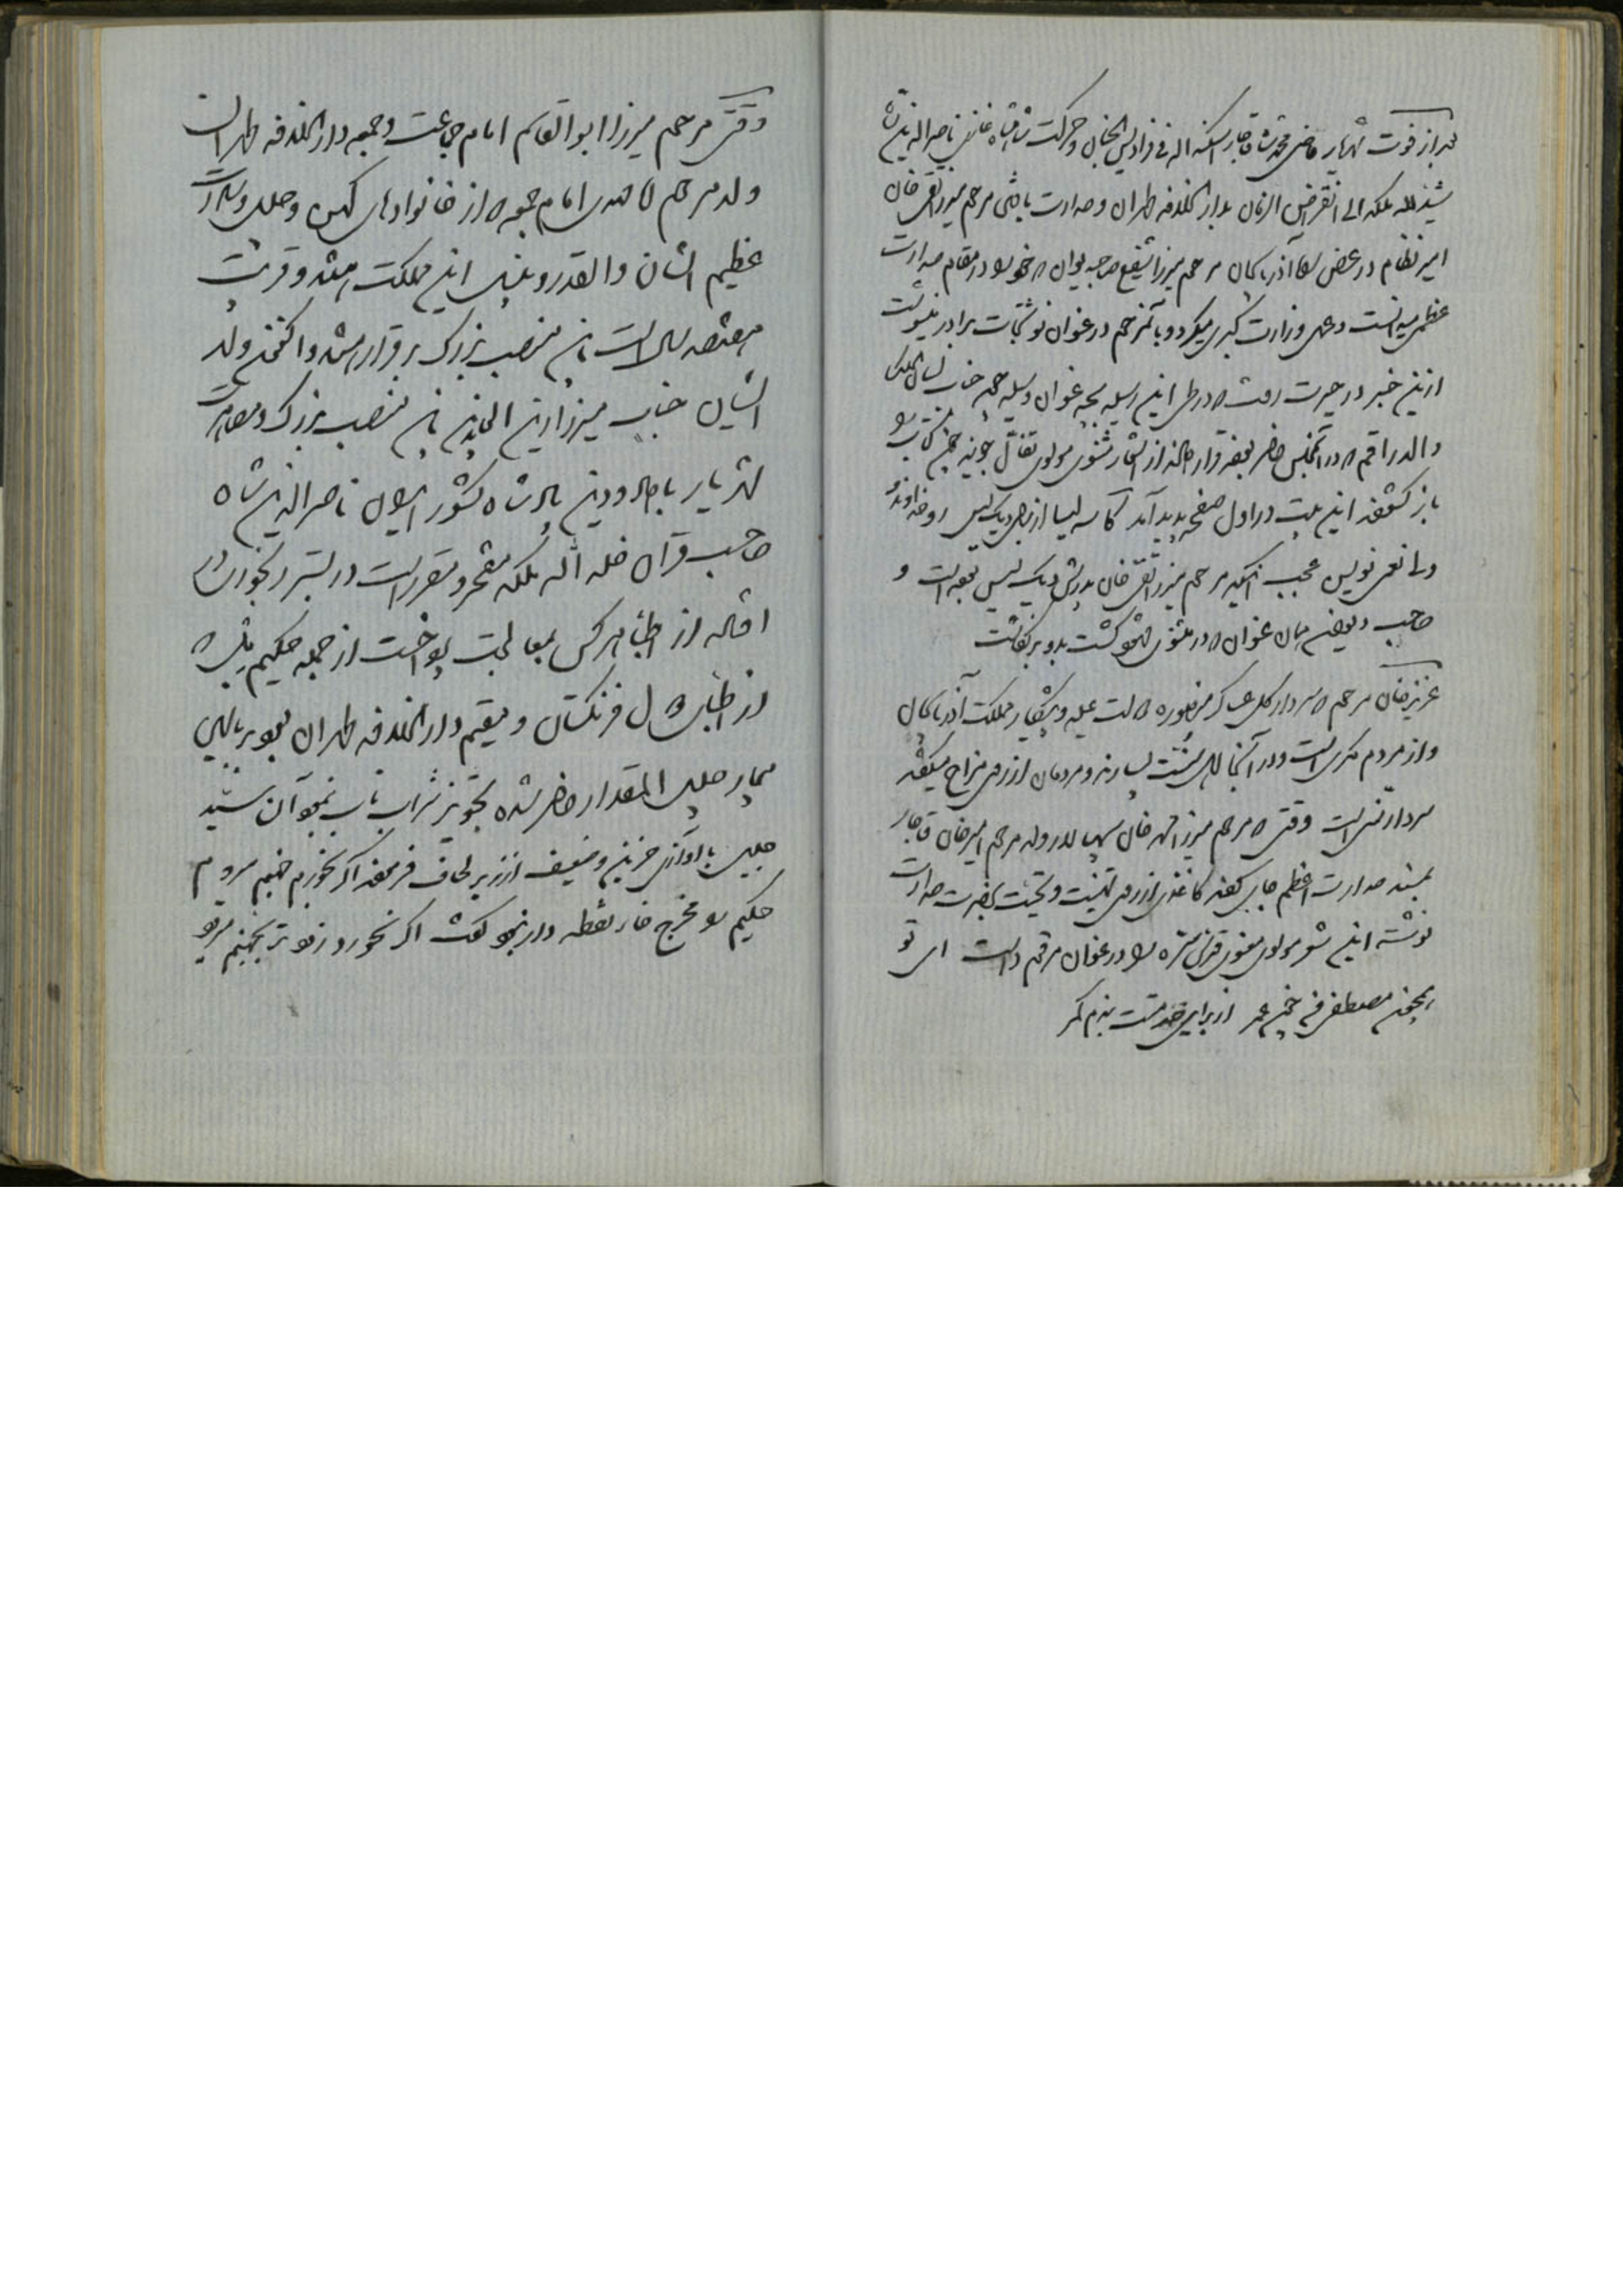 بعد از فوت شهریار ماضی محمد شاه قاجار اسکنه الله فی فرادیس الجنان و حرکت شاهنشاه غازی ناصرالدین شاه
خلد الله ملکه الی انقراض الزمان بدار الخلافه طهران و صدارت یافتن مرحوم میرزا تقی خان
امیر نظام در عرض راه آذربایجان مرحوم میرزا شفیع صاحب دیوان که خود را در مقام صدارت
عظمی میدانست و دعوی وزارت کبری میکرد و با آنمرحوم در عنوان نوشتجات برادر مینوشت
ازین خبر در حیرت رفت که در طی این رسیله بچه عنوان وسیله جوید جناب لسان الملک
والد راقم که در آنمجلس حاضر بود قرار داد که از اشعار مثنوی مولوی تفأل جوید چون کتاب را
باز کشودند این بیت در اول صفحه پدید آمد کاسه لیسا از پی دیک لیس رو خداوند
ولی نعمی نویس عجب آنکه مرحوم میرزا تقی خان پدرش دیک لیس بوده است و
صاحب دیوان همان عنوان که در مثنوی بود نوشت بدو بنکاشت
عزیزخان مرحوم که سردار کل عساکر منصوره دولت علیه و پیشکار مملکت آذربایجان
و از مردم مکری است و در آنجا اهل سنت بسیارند و مردمان از روی مزاح میکفتند
سردار سنی است وقتی که مرحوم میرزا محمد خان سپهسالار ولد مرحوم امیرخان قاجار
بمسند صدارت اعظم جای کفت کاغذی از روی تهنیت و تحیت بحضرت صدارت
نوشته این شعر مولوی معنوی قدس سره را در عنوان مرقوم داشت ای تو
همچون مصطفی من چون عمر از برای خدمتت بندم کمر
وقتی مرحوم میرزا ابوالقاسم امام جماعت و جمعه دار الخلافه طهران
ولد مرحوم آقا مهدی امام جمعه که از خانوادهای کهن و جلیل و سادات
عظیم الشان والقدر و بلند این مملکت هستند و قریب
هفتصد سال است باین منصب بزرک برقرار هستند و اکنون ولد
ایشان جناب میرزا زین العابدین باین منصب بزرک و مصاهرت
شهریار با داد و دین پادشاه کشور ایران ناصرالدین شاه
صاحب قران خلد الله ملکه مفتخر و مقرر است در بستر رنجوری
افتاد از اطبا هرکس بمعالجت پرداخت از جمله حکیم پلک که
از اطبای فرنکستان و مقیم دار الخلافه طهران بود بر بالین
بیمار جلیل المقدار حاضر شده تجویز شراب ناب نمود آن سید
جلیل با آواز حزین و ضعیف از زیر لحاف فرمود اکر نخورم بجهنم میروم
حکیم که مخرج خاء نقطه دار نبود کفت اکر نخورد زودتر بجهنم میرود